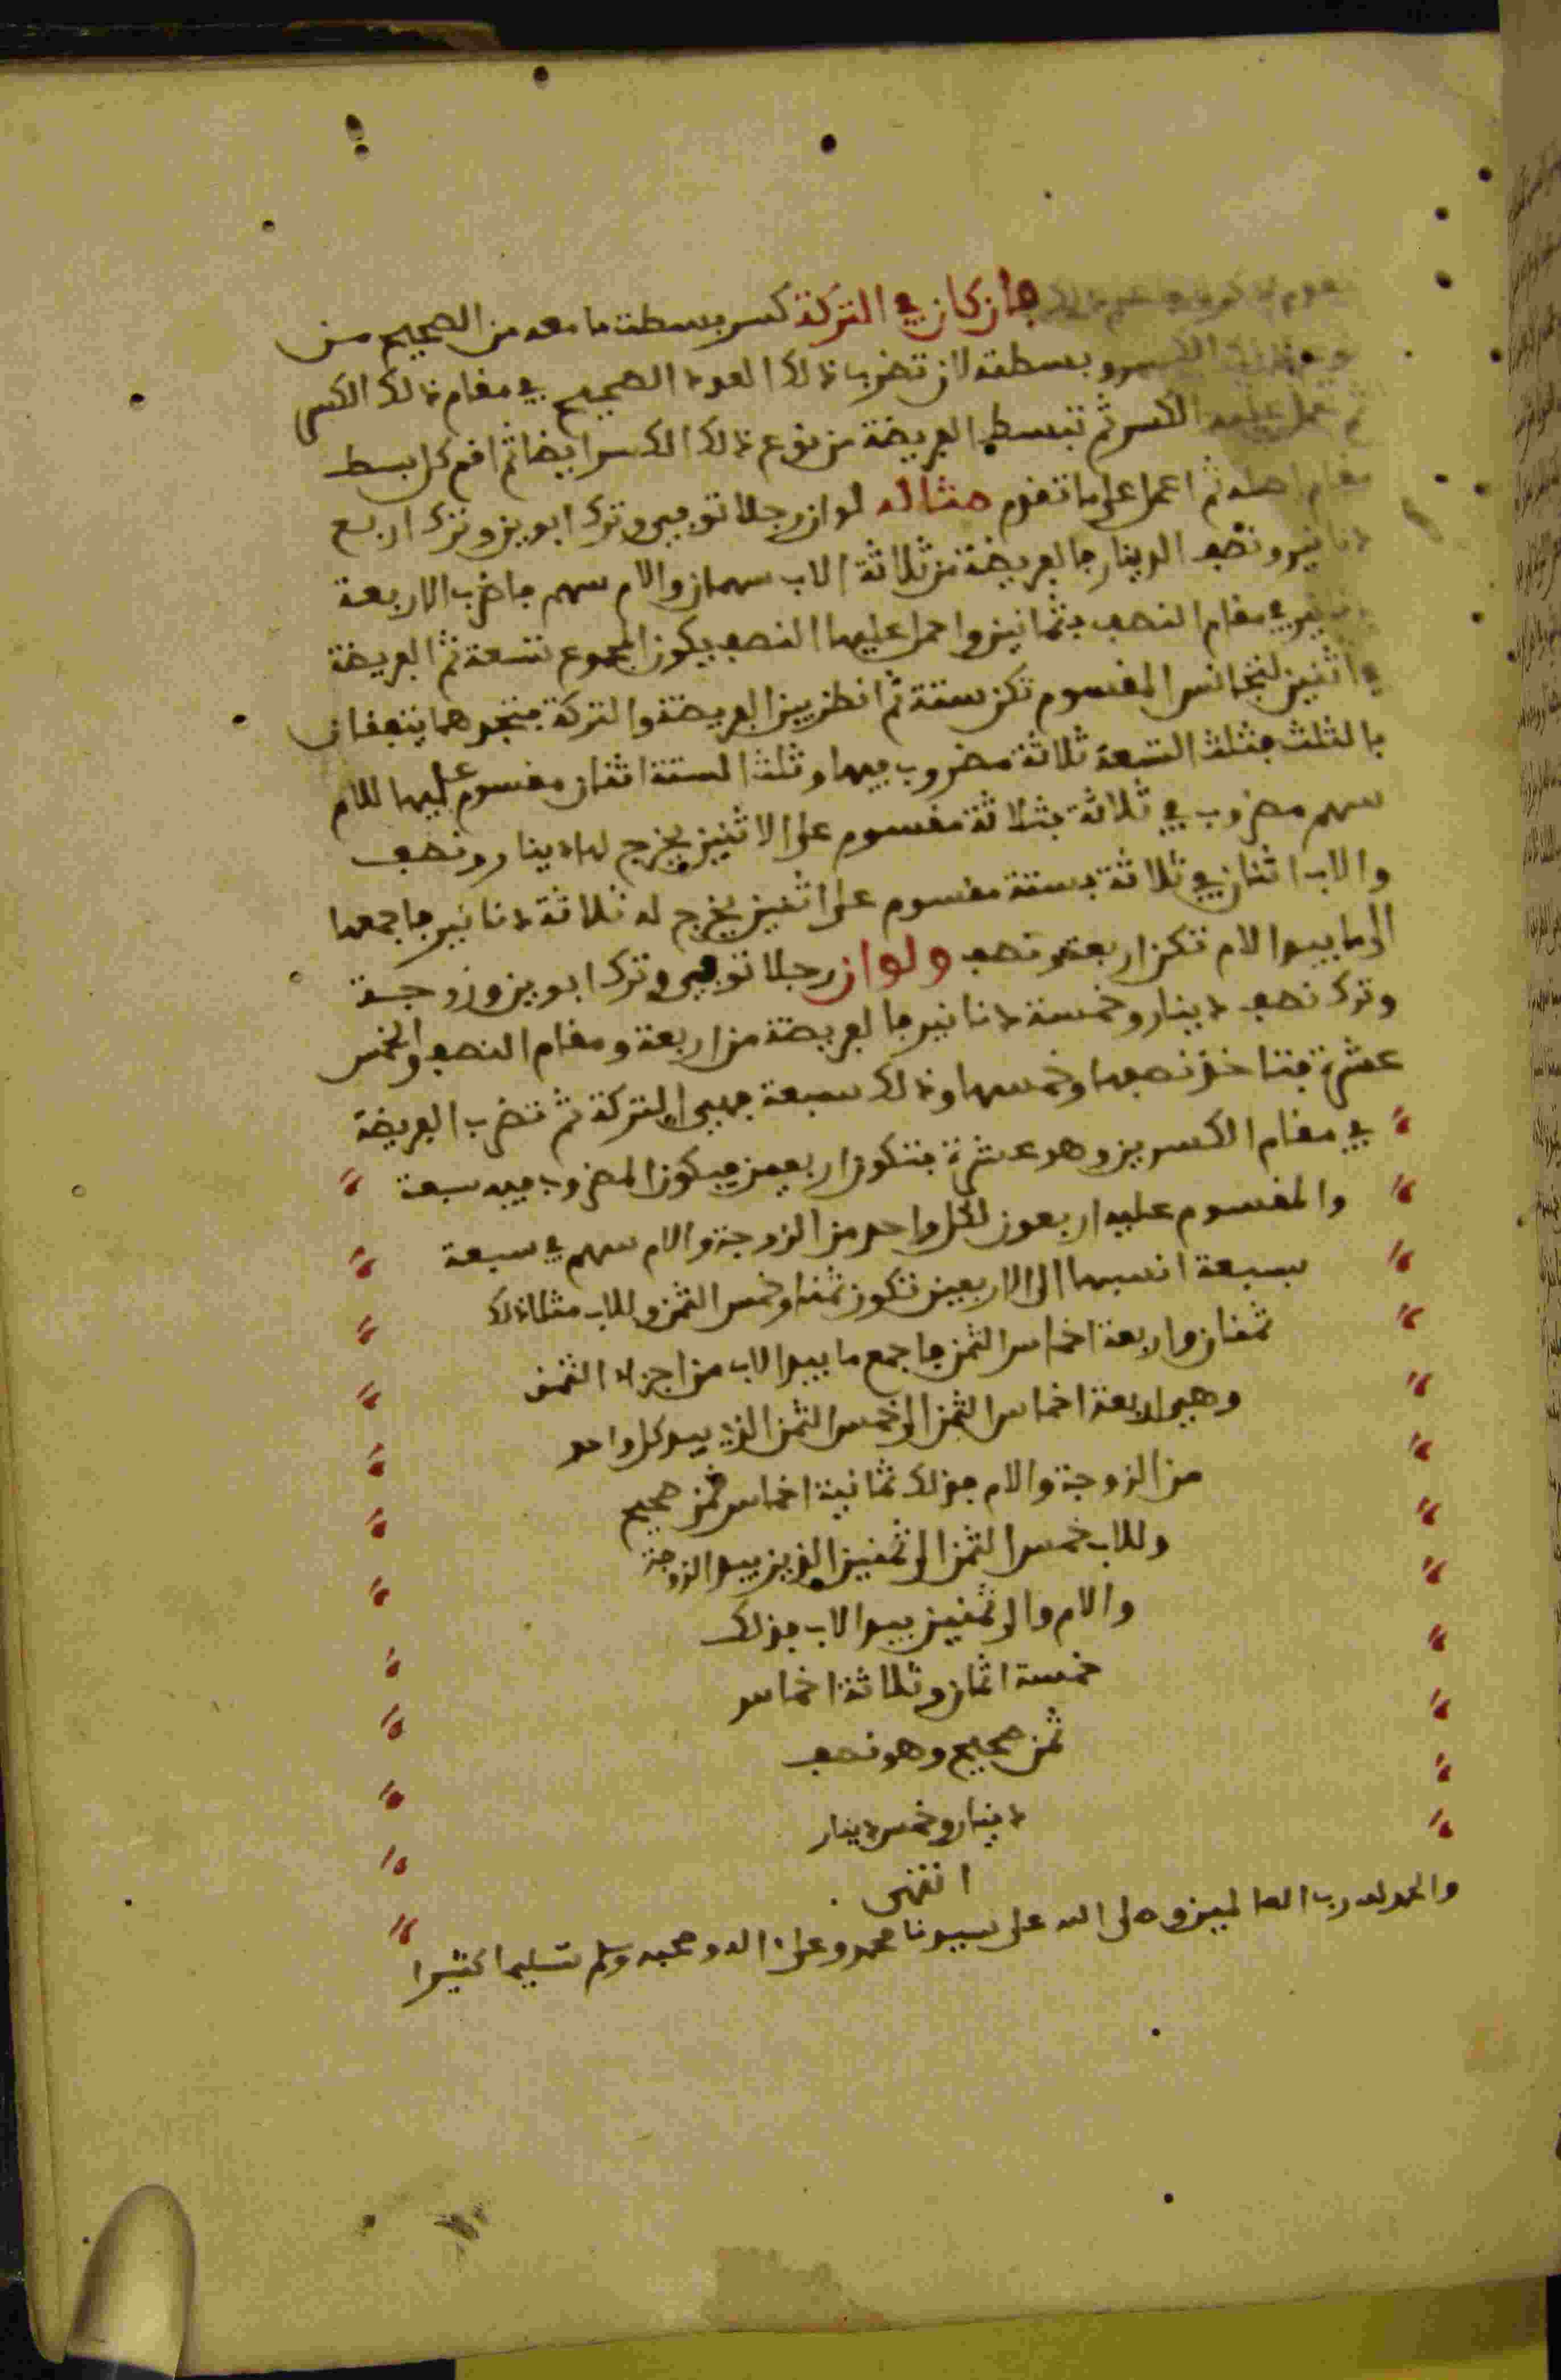 فإن كان في التركة كسر بسطته ما معه من الصحيح من
الكسر وبسطته لان تضرب ذلك العدد الصحيح في مقام ذلك الكسر
ثم تحمل عليه الكسر ثم تبسط الفريضة من نوع ذلك الكسر ايضا ثم اقم كل بسط
مقام اصله ثم اعمل على ما تقدم مثاله لو ان رجلا توفي وترك ابوين وترك اربع
دنانير ونصف الدينار فالفريضة من ثلاثة الاب سهمان والام سهم فاضرب الاربعة
في مقام النصف بثمانين واحمل عليها النصف يكون المجموع تسعة ثم الفريضة
في اثنين لتجانس المقسوم تكن ستة ثم انظر بين الفريضة والتركة فتجدهما يتفقان
بالثلث فثلث التسعة ثلاثة مضروب فيها وثلث الستة اثنان مقسوم عليها للام
سهم مضروب في ثلاثة بثلاثة مقسوم على الاثنين يخرج لها دينار ونصف
والاب اثنان في ثلاثة بستة مقسوم على اثنين يخرج له ثلاثة دنانير فاجمعها
الى ما بيد الام تكن اربعة ونصف ولو ان رجلا توفي وترك ابوين وزوجة
وترك نصف دينار وخمسة دنانير فالفريضة من اربعة ومقام النصف والخمس
عشرة فتاخذ نصفها وخمسها وذلك سبعة فهي التركة ثم تضرب الفريضة
في مقام الكسرين وهو عشرة فتكون اربعين فيكون المضروب فيه سبعة
والمقسوم عليه اربعون لكل واحد من الزوجة والام سهم في سبعة
بسبعة انسبها الى الاربعين تكون ثمنا وخمس الثمن وللاب مثلا ذلك
ثمنان واربعة اخماس الثمن فاجمع ما بيد الاب من اجزاء الثمن
وهي اربعة اخماس الثمن الى خمس الثمن الذي بيد كل واحد
من الزوجة والام فذلك ثمانية اخماس ثمن صحيح
وللاب خمس الثمن الى ثمنين الذين بيد الزوجة
والام والى ثمنين بيد الاب فذلك
خمسة اثمان وثلاثة اخماس
ثمن صحيح وهو نصف
دينار وخمس دينار
انتهى
والحمد لله رب العالمين وصلى الله على سيدنا محمد وعلى اله وصحبه وسلم تسليما كثيرا